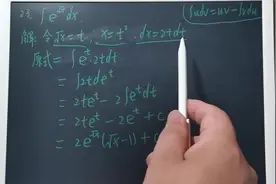 23. ∫e^√x dx
∫udv = uv - ∫vdu
解: 令√x = t, x = t², dx = 2tdt
原式 = ∫e^t · 2tdt
= ∫2tde^t
= 2te^t - 2∫e^t dt
= 2te^t - 2e^t + C
= 2e^√x (√x - 1) + C